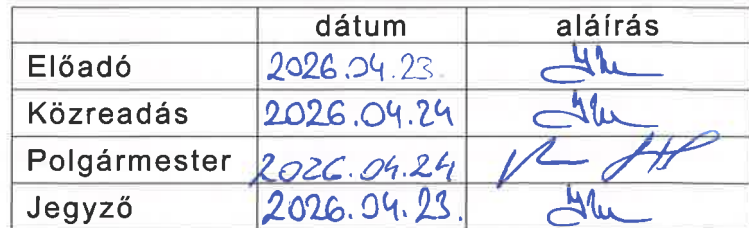 dátum aláírás
Előadó 2026.04.23.
Közreadás 2026.04.24
Polgármester 2026.04.24
Jegyző 2026.04.23.